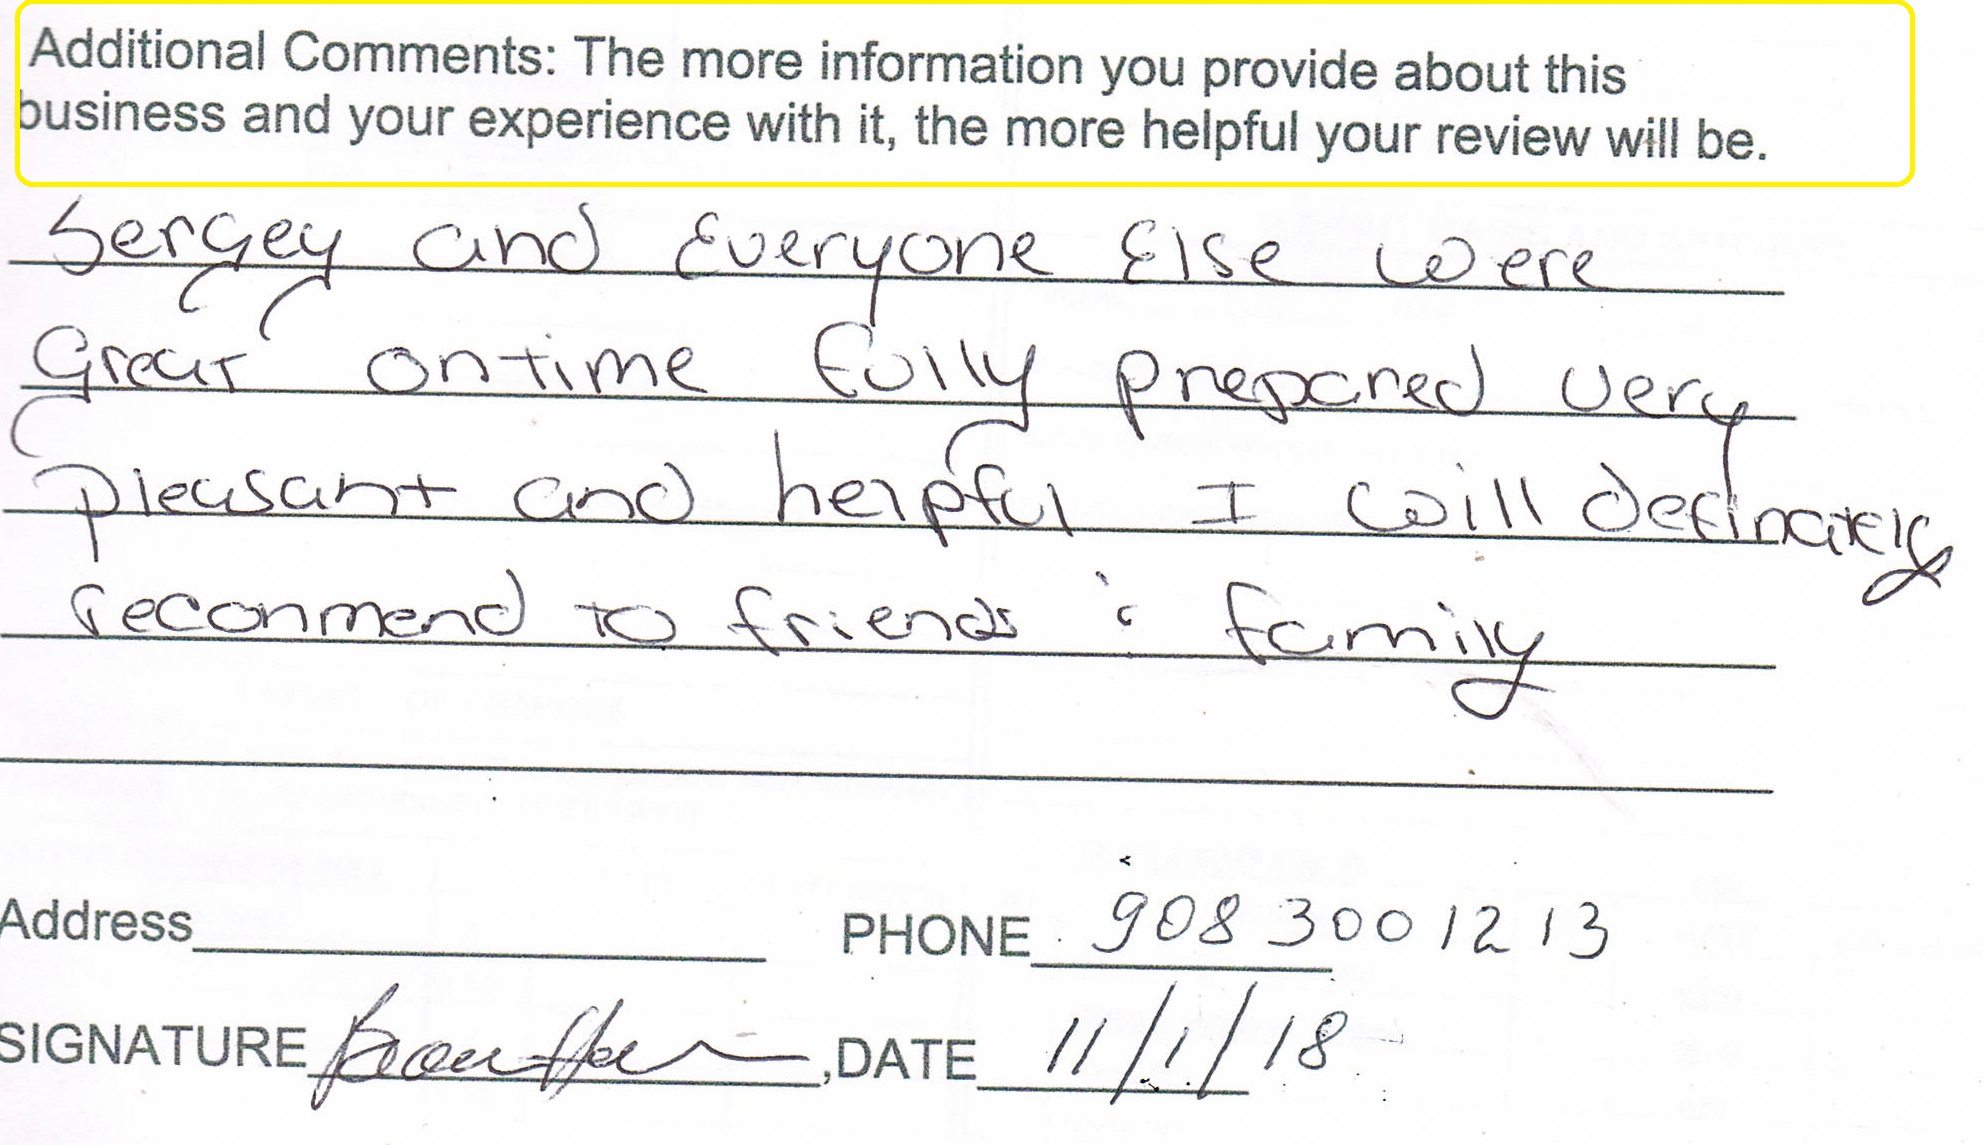 Additional Comments: The more information you provide about this
business and your experience with it, the more helpful your review will be.
Sergey and Everyone Else were
Great ontime fully prepared very
pleasant and helpful I will definately
reconmend to friends & family
Address PHONE 908 300 1213
SIGNATURE , DATE 11/1/18